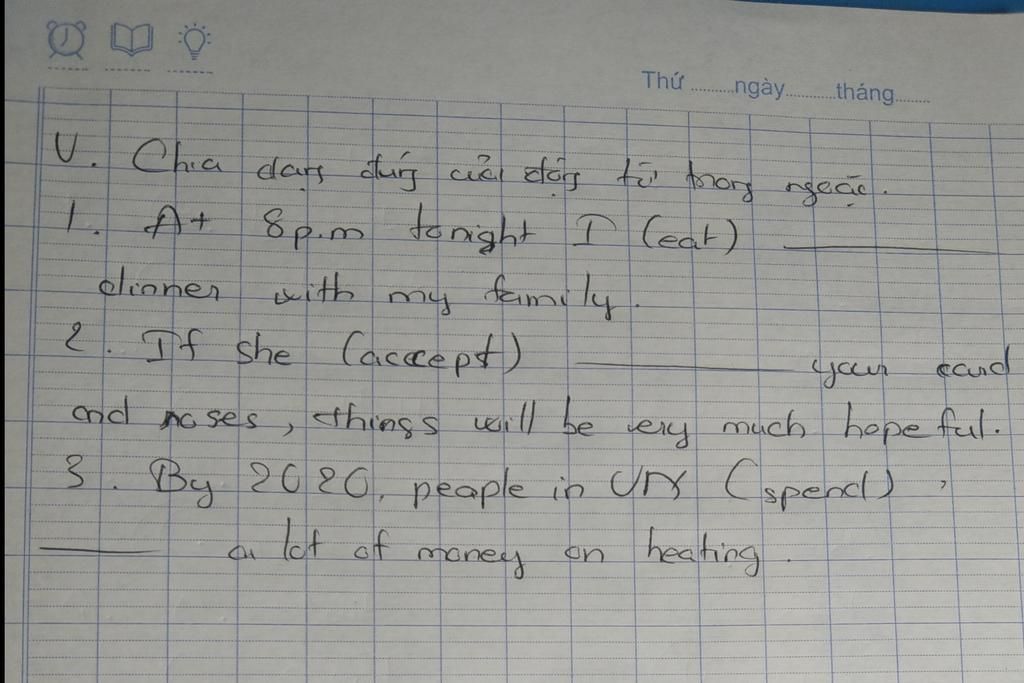 Thứ.........ngày..........tháng.......
V. Chia dạng đúng của động từ trong ngoặc.
1. At 8p.m tonight I (eat) ________
dinner with my family.
2. If she (acccept) ________ your card
and roses, things will be very much hopeful.
3. By 2020, people in VN (spend),
________ a lot of money on heating.